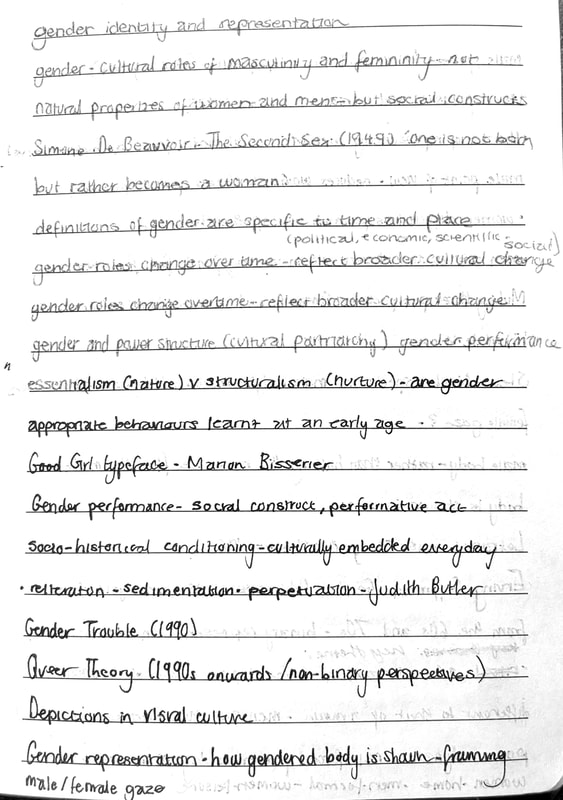 gender identity and representation
gender - cultural roles of masculinity and femininity - not
natural properties of women and men - but social constructs
Simone De Beauvoir - The Second Sex (1949) 'one is not born
but rather becomes a woman'
definitions of gender are specific to time and place
(political, economic, scientific - social)
gender roles change over time - reflect broader cultural change
gender roles change overtime - reflect broader cultural change
gender and power structure (cultural partriarchy) gender performance
essentialism (nature) v structuralism (nurture) - are gender
appropriate behaviours learnt at an early age
Good Girl typeface - Marion Bisserier
Gender performance - social construct, performative act
socio-historical conditioning - culturally embedded everyday
• reiteration - sedimentation - perpetuation - Judith Butler
Gender Trouble (1990)
Queer Theory (1990s onwards / non-binary perspectives)
Depictions in visual culture
Gender representation - how gendered body is shown - framing
male / female gaze